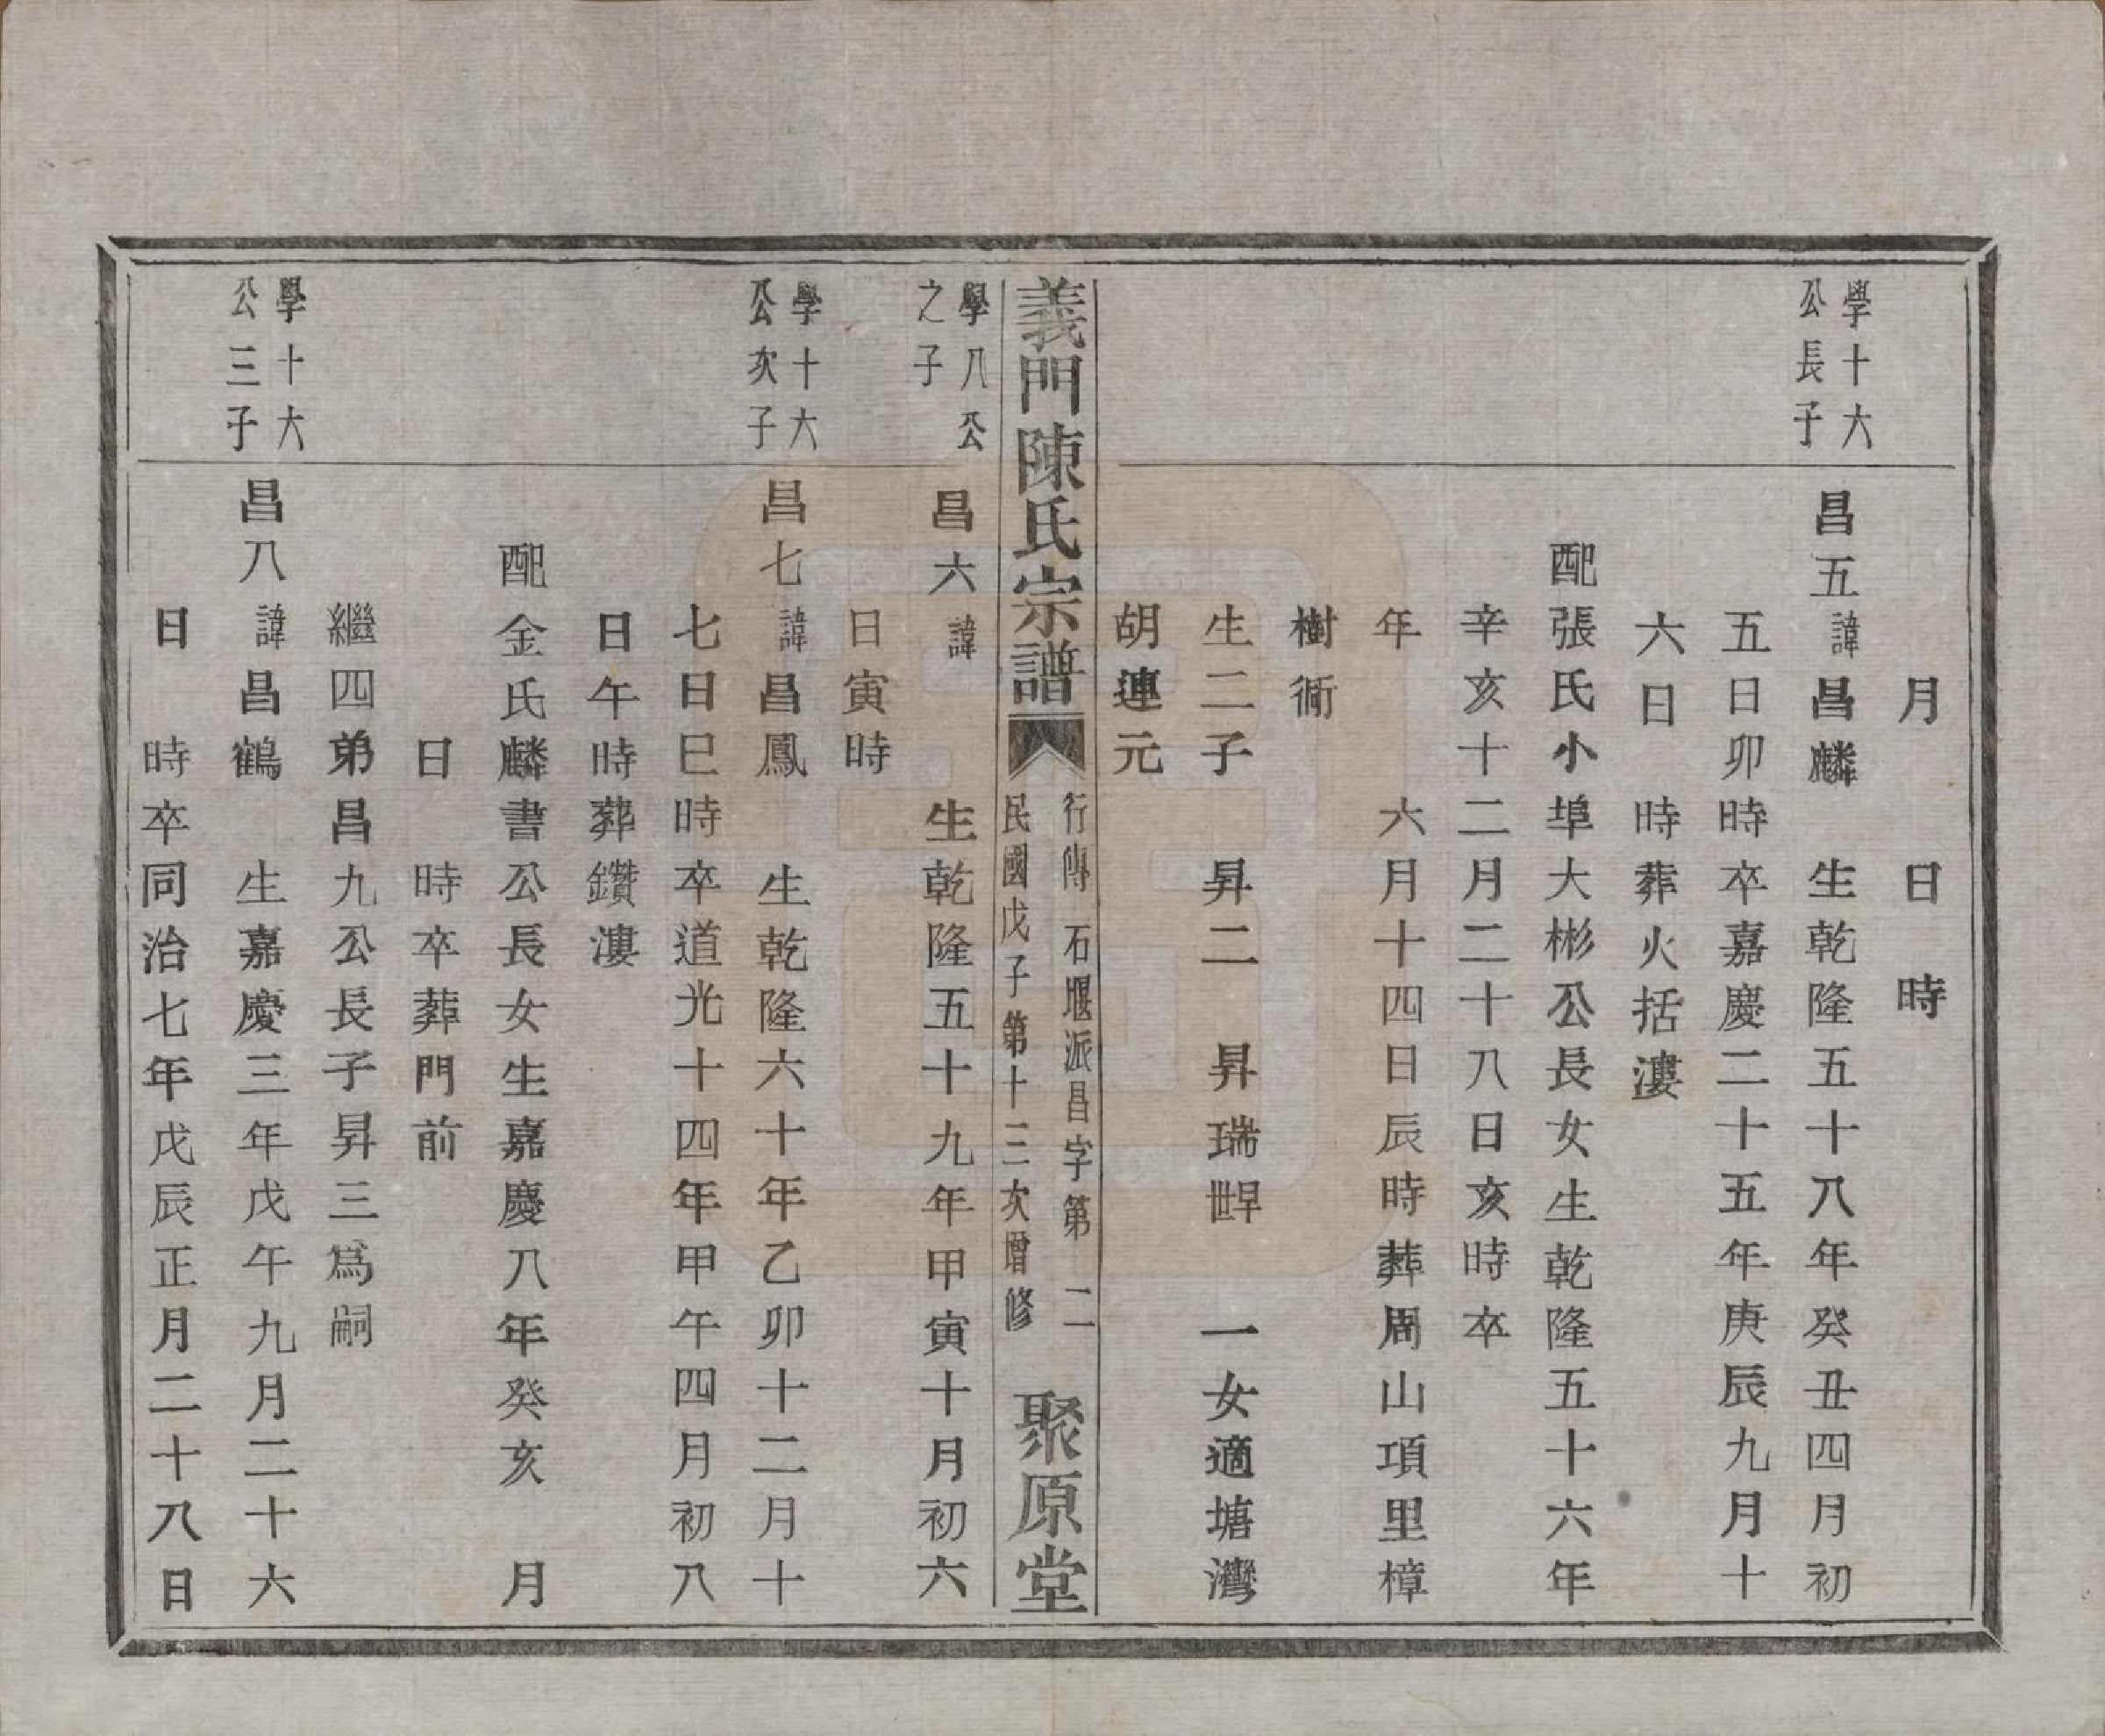 月　日　時
學十六
公長子
昌五諱昌麟　生乾隆五十八年癸丑四月初
五日卯時卒嘉慶二十五年庚辰九月十
六日　時葬火括漊
配張氏小埠大彬公長女生乾隆五十六年
辛亥十二月二十八日亥時卒
年　六月十四日辰時葬周山項里樟
樹衕
生二子　昇二　昇瑞　一女適塘灣
胡連元
義門陳氏宗譜
行傳　石堰派昌字第　二
民國戊子第十三次增修
聚原堂
學八公
之子
昌六諱　生乾隆五十九年甲寅十月初六
日寅時
學十六
公次子
昌七諱昌鳳　生乾隆六十年乙卯十二月十
七日巳時卒道光十四年甲午四月初八
日午時葬鑽漊
配金氏麟書公長女生嘉慶八年癸亥　月
日　時卒葬門前
繼四弟昌九公長子昇三為嗣
學十六
公三子
昌八諱昌鶴　生嘉慶三年戊午九月二十六
日　時卒同治七年戊辰正月二十八日